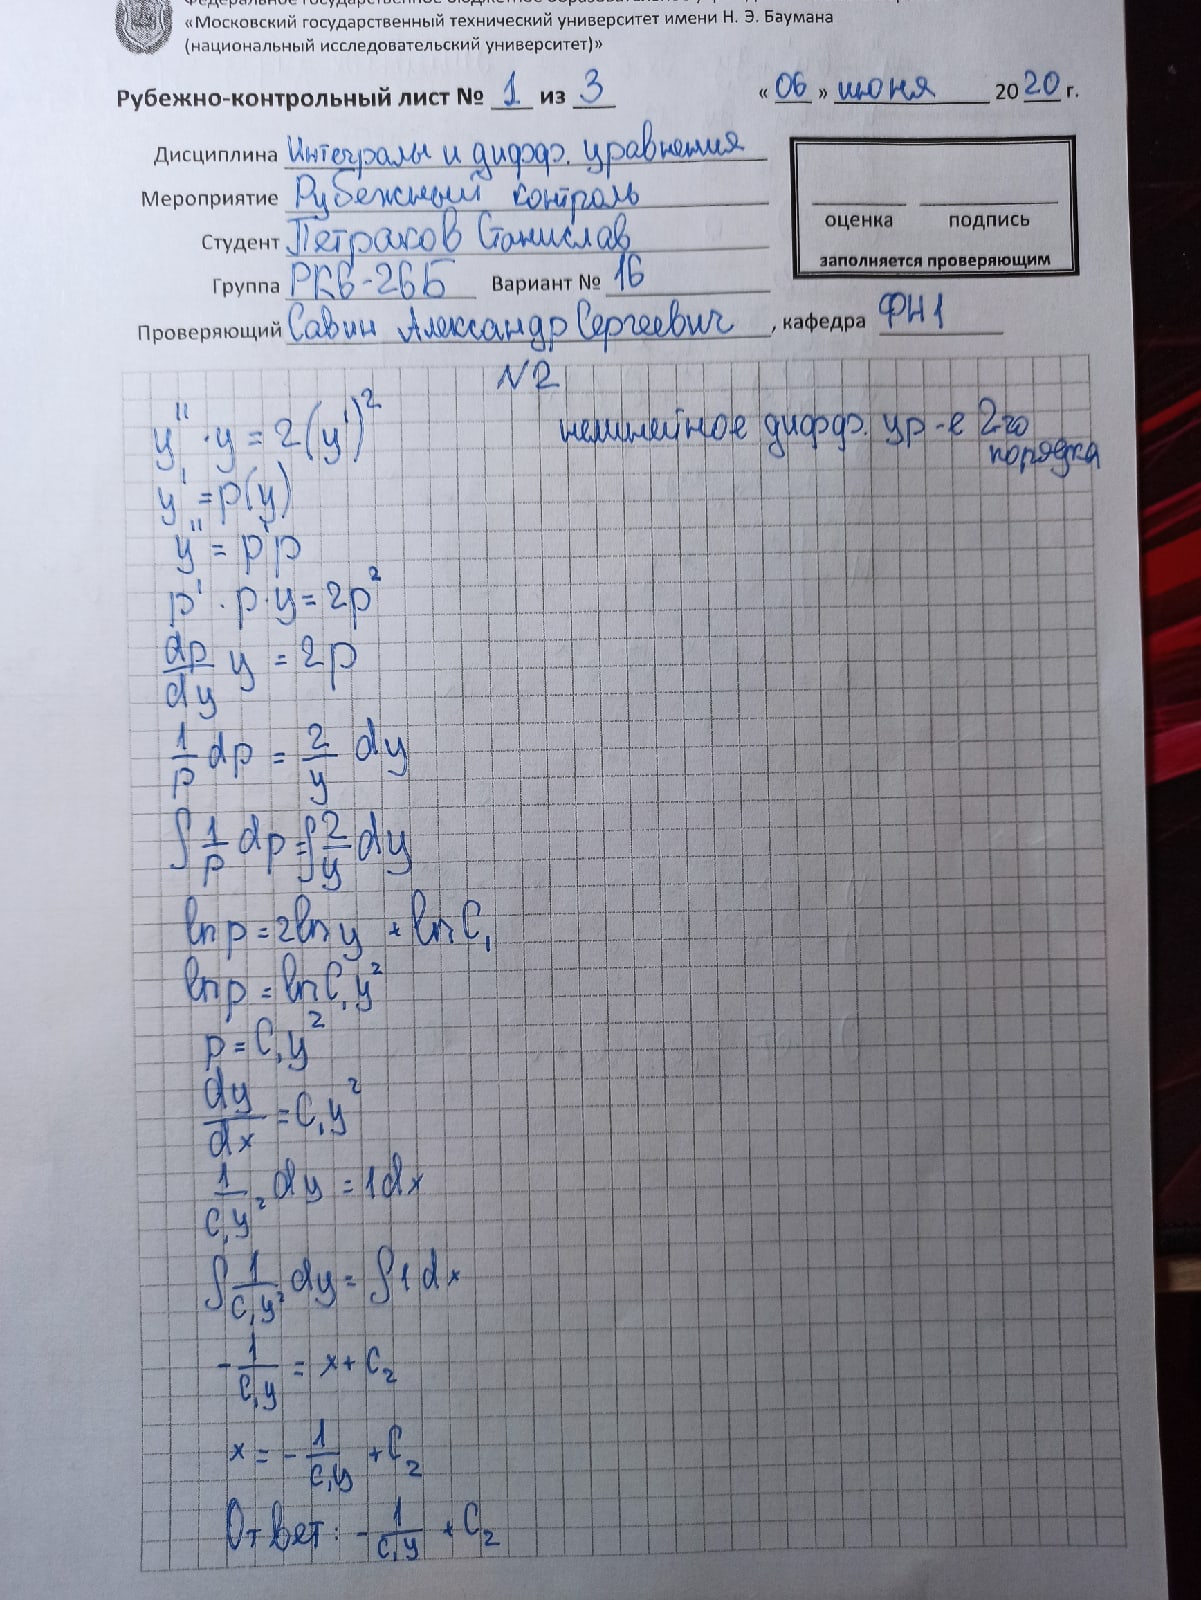 «Московский государственный технический университет имени Н. Э. Баумана
(национальный исследовательский университет)»
Рубежно-контрольный лист № 1 из 3 «06» июня 2020 г.
Дисциплина Интегралы и дифф. уравнения
Мероприятие Рубежный контроль
Студент Петраков Станислав
Группа РК6-26Б Вариант № 16
Проверяющий Савин Александр Сергеевич, кафедра ФН1
оценка подпись
заполняется проверяющим
№2
y''·y = 2(y')² нелинейное дифф. ур-е 2го
порядка
y' = p(y)
y'' = p'p
p'·p·y = 2p²
dp/dy y = 2p
1/p dp = 2/y dy
∫1/p dp = ∫2/y dy
ln p = 2ln y + ln C₁
ln p = ln C₁y²
p = C₁y²
dy/dx = C₁y²
1/C₁y² dy = 1dx
∫1/C₁y² dy = ∫1dx
-1/C₁y = x + C₂
x = -1/C₁y + C₂
Ответ: -1/C₁y + C₂